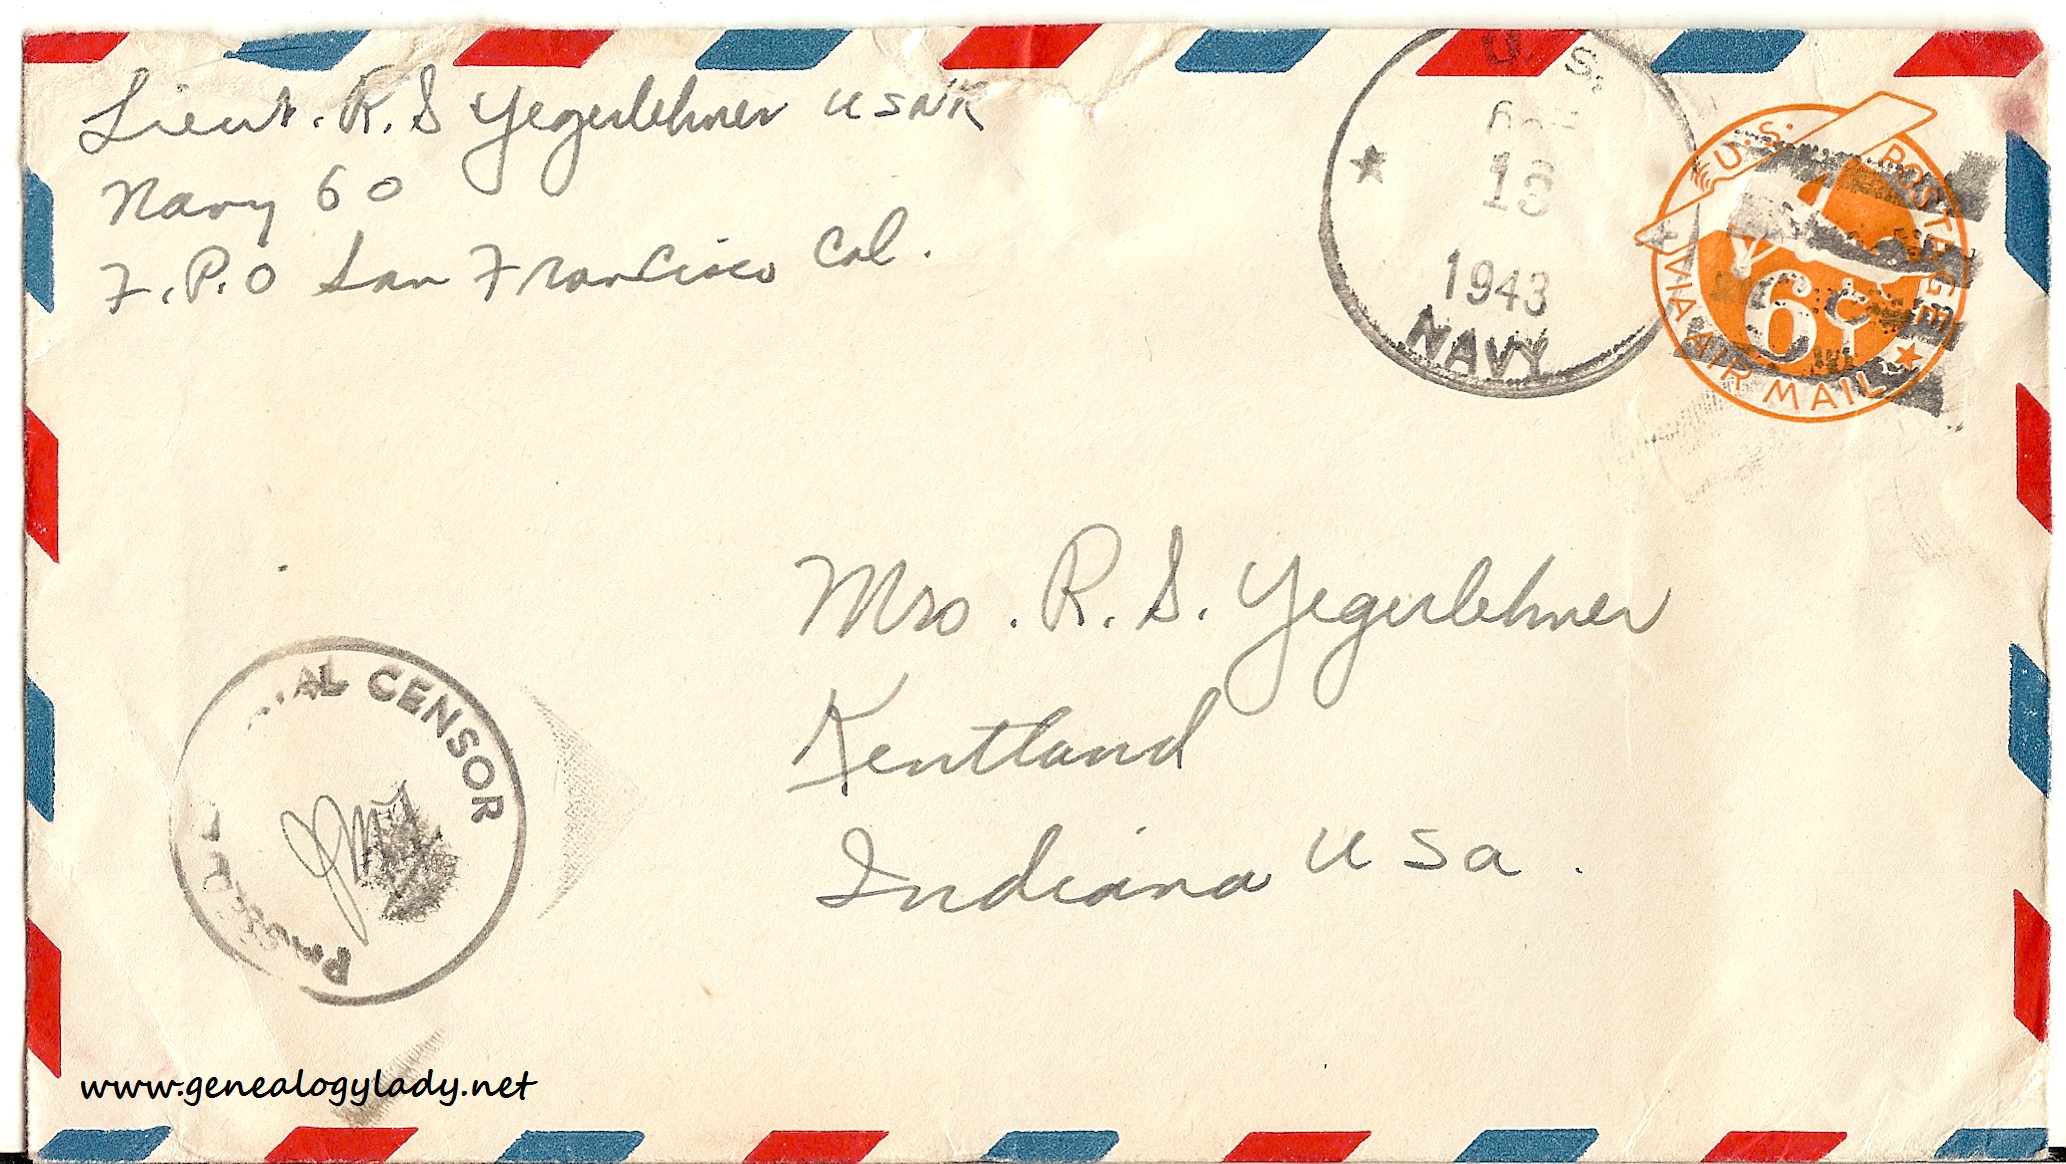 Lieut. R. S Yegerlehner USNR
Navy 60
F.P.O San Francisco Cal.
U. S.
13
1943
NAVY
U.S. POSTAGE
6¢
VIA AIR MAIL
Mrs. R. S. Yegerlehner
Kentland
Indiana USa.
CENSOR
www.genealogylady.net